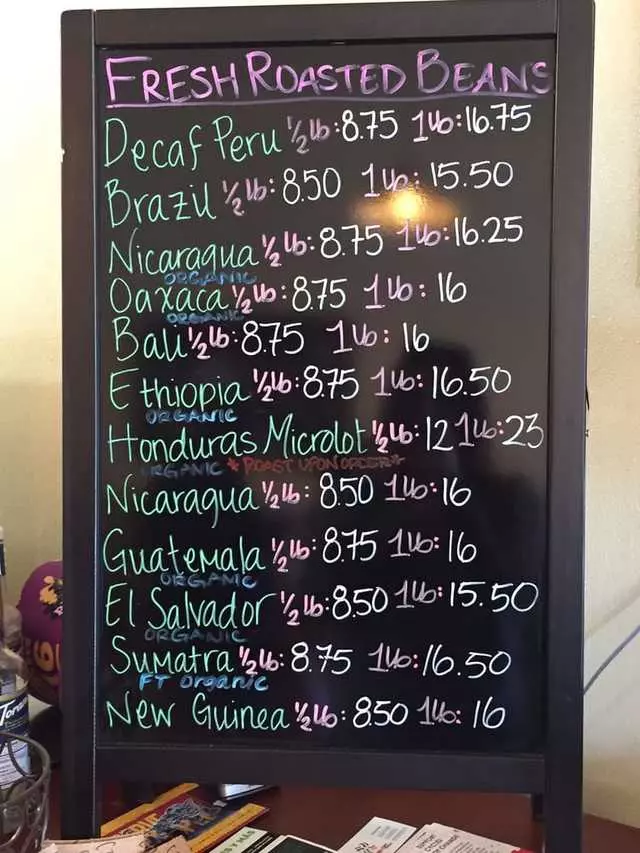 FRESH ROASTED BEANS
Decaf Peru ½ lb: 8.75 1 lb: 16.75
Brazil ½ lb: 8.50 1 lb: 15.50
Nicaragua ½ lb: 8.75 1 lb: 16.25
ORGANIC
Oaxaca ½ lb: 8.75 1 lb: 16
ORGANIC
Bali ½ lb: 8.75 1 lb: 16
Ethiopia ½ lb: 8.75 1 lb: 16.50
ORGANIC
Honduras Microlot ½ lb: 12 1 lb: 23
ORGANIC *ROAST UPON ORDER*
Nicaragua ½ lb: 8.50 1 lb: 16
Guatemala ½ lb: 8.75 1 lb: 16
ORGANIC
El Salvador ½ lb: 8.50 1 lb: 15.50
ORGANIC
Sumatra ½ lb: 8.75 1 lb: 16.50
FT organic
New Guinea ½ lb: 8.50 1 lb: 16